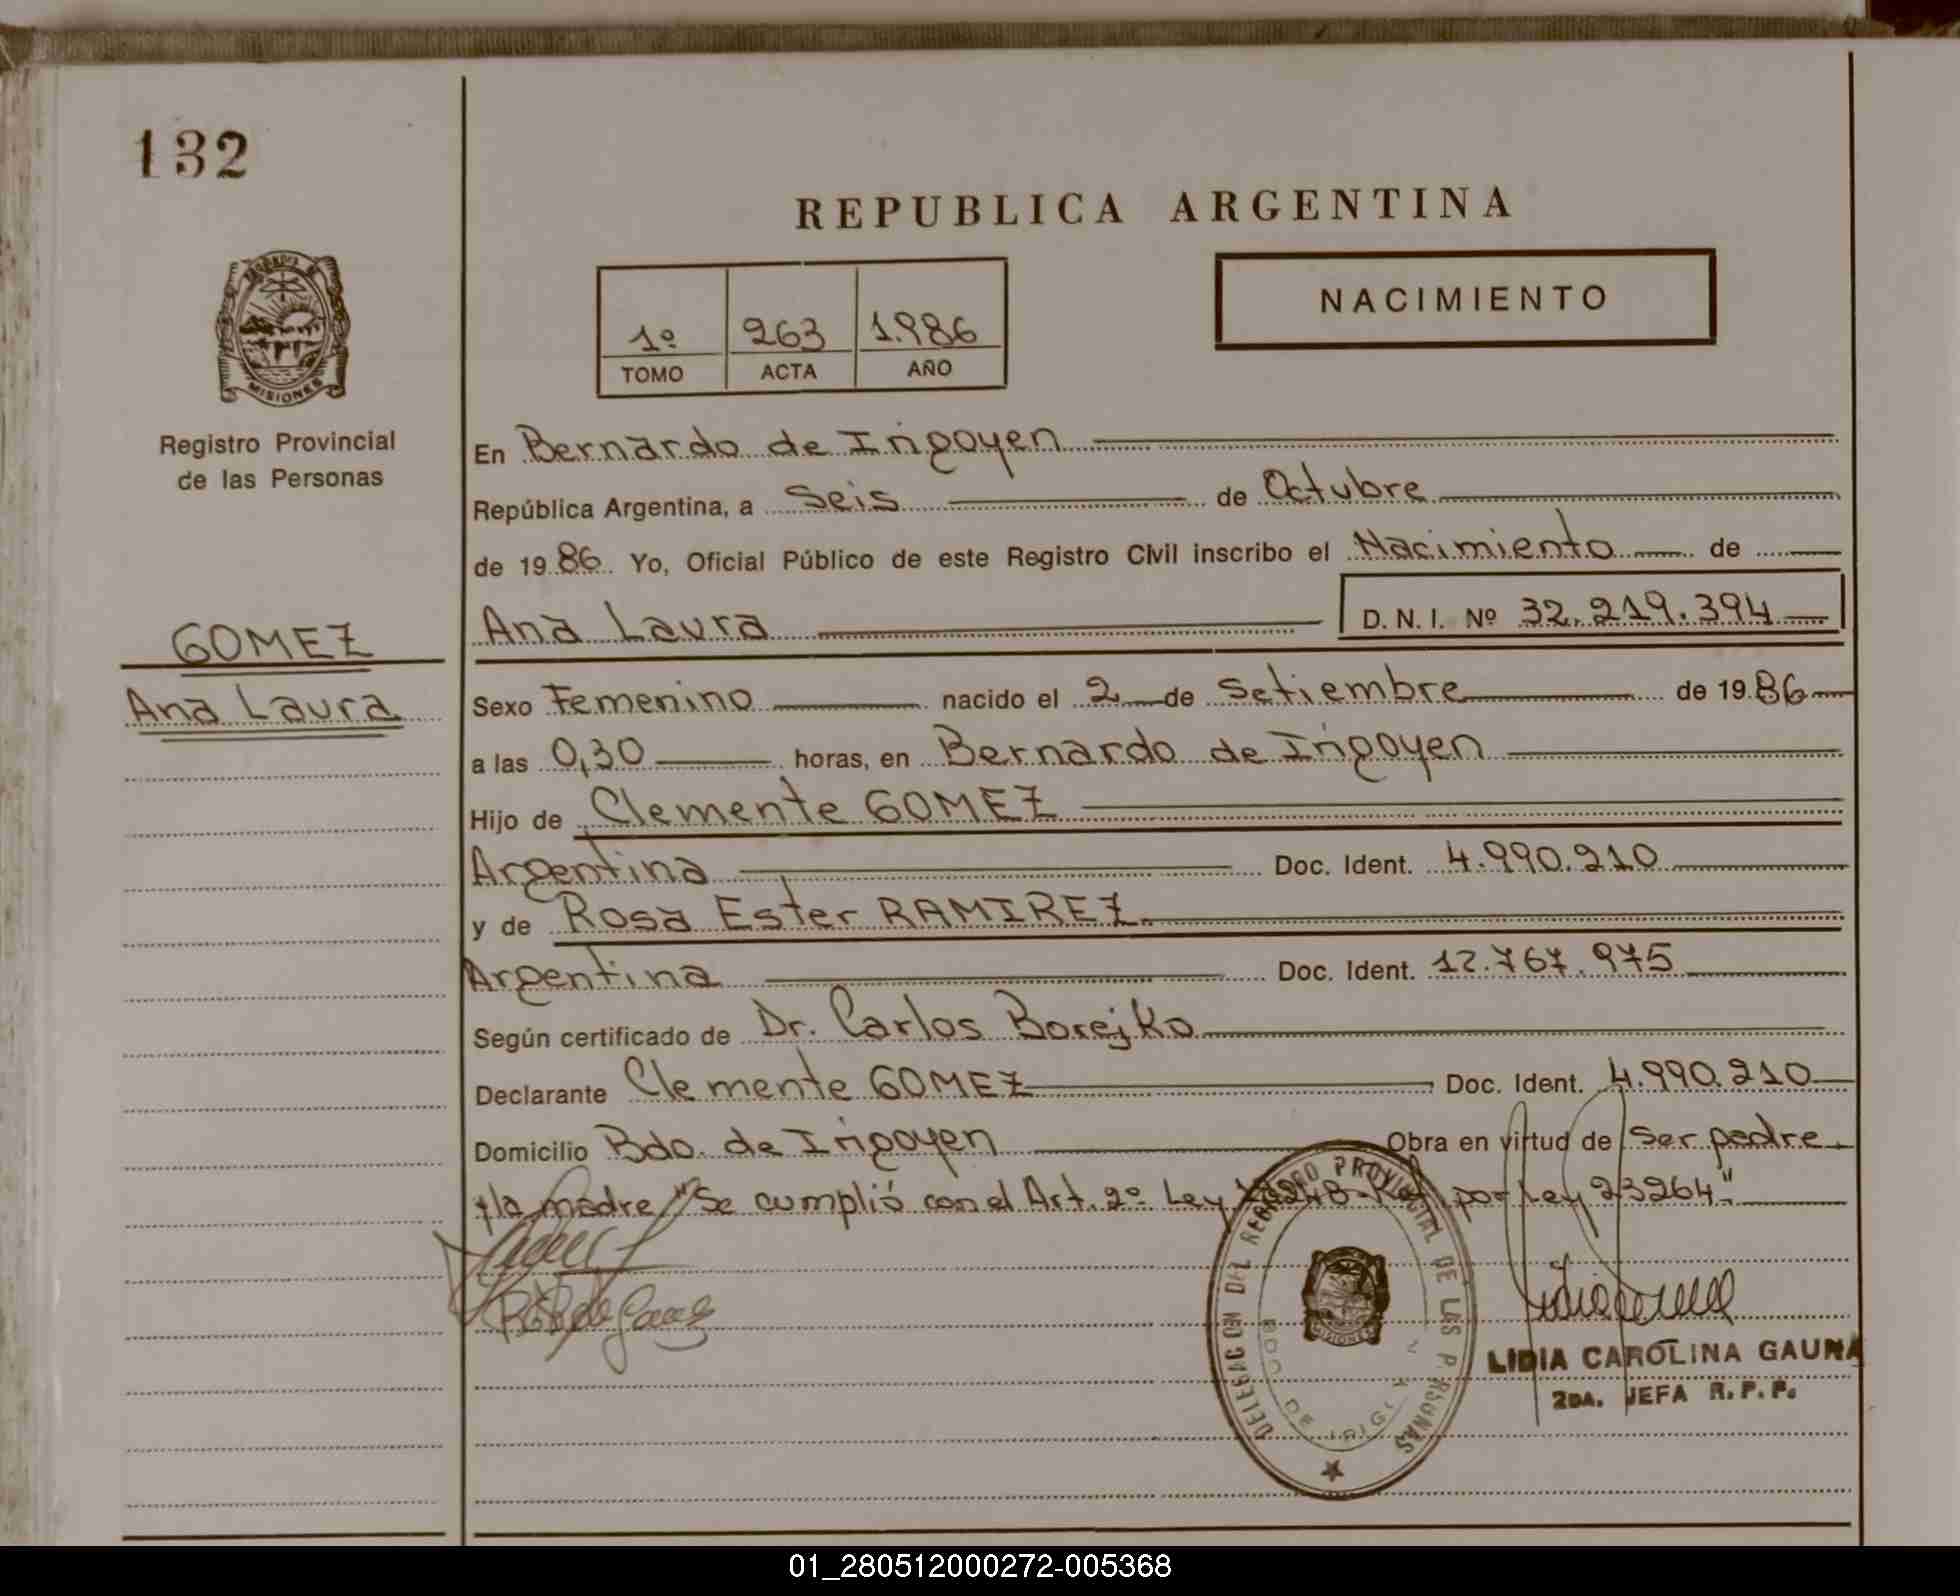 132
REPUBLICA ARGENTINA
1º 263 1.986
TOMO ACTA AÑO
NACIMIENTO
MISIONES
Registro Provincial
de las Personas
GOMEZ
Ana Laura
En Bernardo de Irigoyen
República Argentina, a Seis de Octubre
de 19 86 Yo, Oficial Público de este Registro Civil inscribo el Nacimiento de
Ana Laura D. N. I. Nº 32.219.394
Sexo Femenino nacido el 2 de Setiembre de 19 86
a las 0,30 horas, en Bernardo de Irigoyen
Hijo de Clemente GOMEZ
Argentina Doc. Ident. 4.990.210
y de Rosa Ester RAMIREZ
Argentina Doc. Ident. 12.767.975
Según certificado de Dr. Carlos Borejko
Declarante Clemente GOMEZ Doc. Ident. 4.990.210
Domicilio Bdo. de Irigoyen Obra en virtud de ser padre
y la madre "Se cumplió con el Art. 2º Ley por Ley 23264"
DELEGACION DEL REGISTRO PROVINCIAL DE LAS PERSONAS
BDO. DE IRIGOYEN
MISIONES
LIDIA CAROLINA GAUNA
2DA. JEFA R. P. P.
01_280512000272-005368